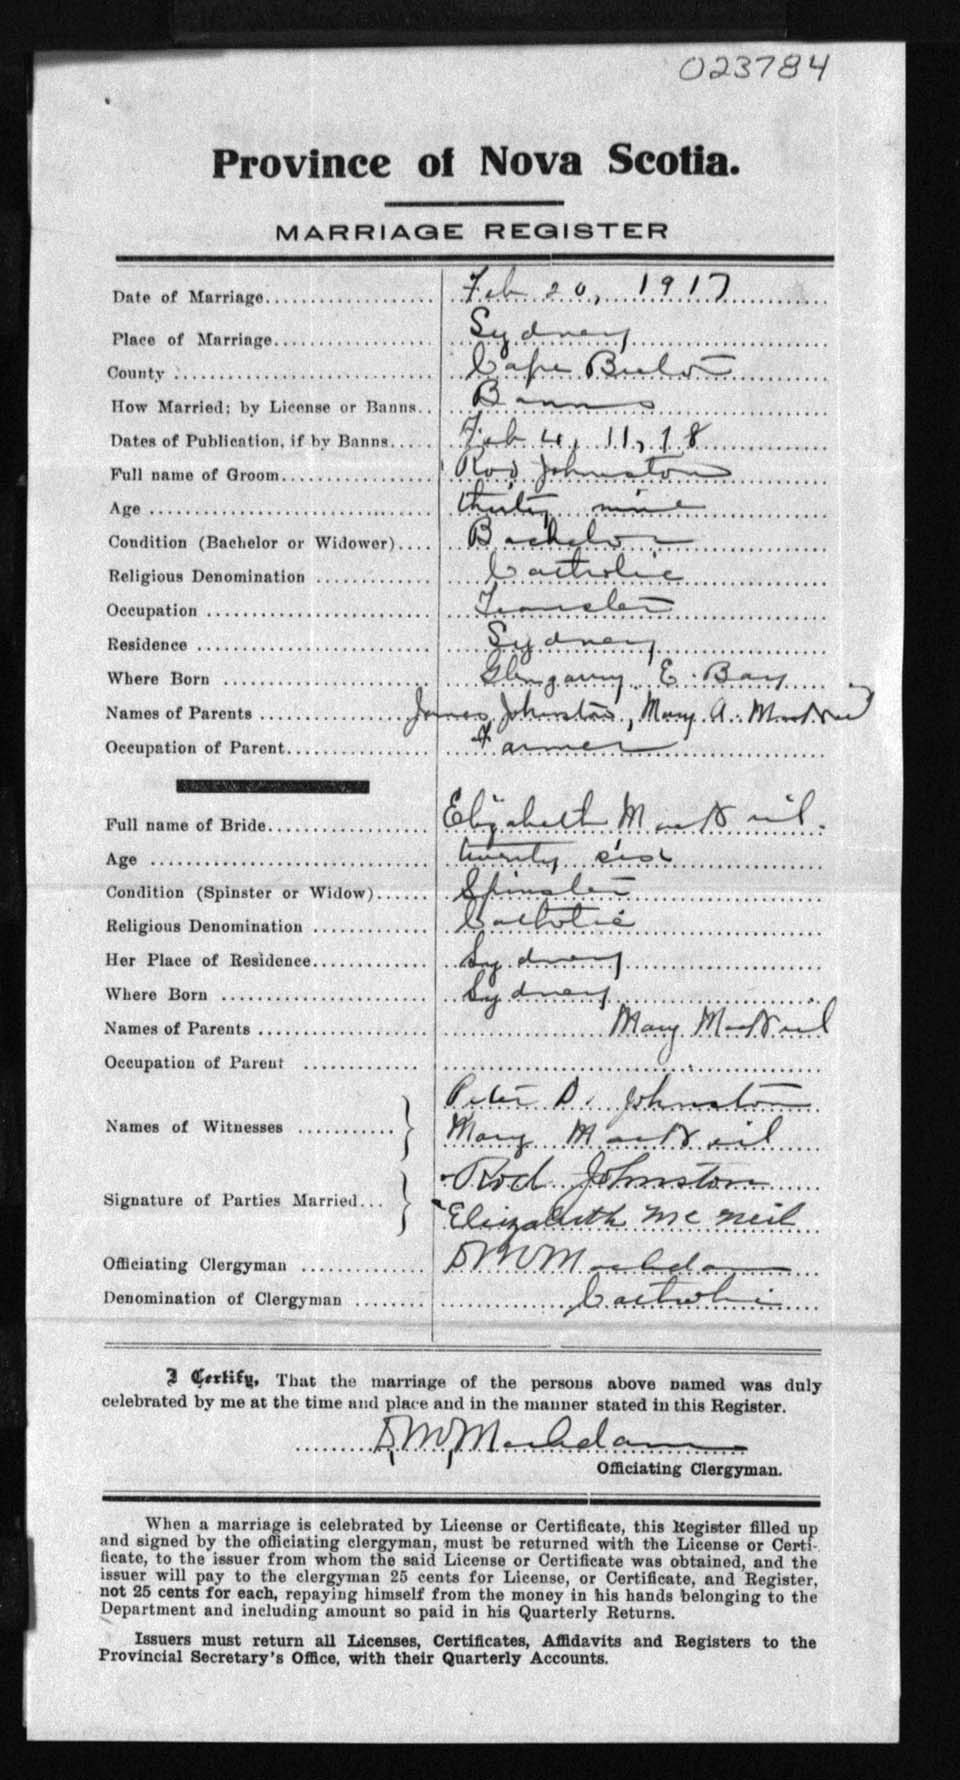 023784
Province of Nova Scotia.
MARRIAGE REGISTER
Date of Marriage.................... Feb 20, 1917
Place of Marriage.................. Sydney
County ............................ Cape Breton
How Married; by License or Banns.. Banns
Dates of Publication, if by Banns..... Feb 4, 11, 18
Full name of Groom................. Rod Johnston
Age ............................... thirty nine
Condition (Bachelor or Widower).... Bachelor
Religious Denomination ............ Catholic
Occupation ........................ Teamster
Residence ......................... Sydney
Where Born ........................ Glengarry E. Bay
Names of Parents .................. James Johnston, Mary A. MacNeil
Occupation of Parent............... Farmer
Full name of Bride................. Elizabeth MacNeil.
Age ............................... twenty six
Condition (Spinster or Widow)...... Spinster
Religious Denomination ............ Catholic
Her Place of Residence............. Sydney
Where Born ........................ Sydney
Names of Parents .................. Mary MacNeil
Occupation of Parent ..............
Peter D. Johnston
Names of Witnesses ...........
Mary MacNeil
Rod Johnston
Signature of Parties Married...
Elizabeth Mc Neil
Officiating Clergyman ............. D M MacAdam
Denomination of Clergyman ........ Catholic
I Certify, That the marriage of the persons above named was duly
celebrated by me at the time and place and in the manner stated in this Register.
D, M, MacAdam
Officiating Clergyman.
When a marriage is celebrated by License or Certificate, this Register filled up
and signed by the officiating clergyman, must be returned with the License or Certi-
ficate, to the issuer from whom the said License or Certificate was obtained, and the
issuer will pay to the clergyman 25 cents for License, or Certificate, and Register,
not 25 cents for each, repaying himself from the money in his hands belonging to the
Department and including amount so paid in his Quarterly Returns.
Issuers must return all Licenses, Certificates, Affidavits and Registers to the
Provincial Secretary's Office, with their Quarterly Accounts.